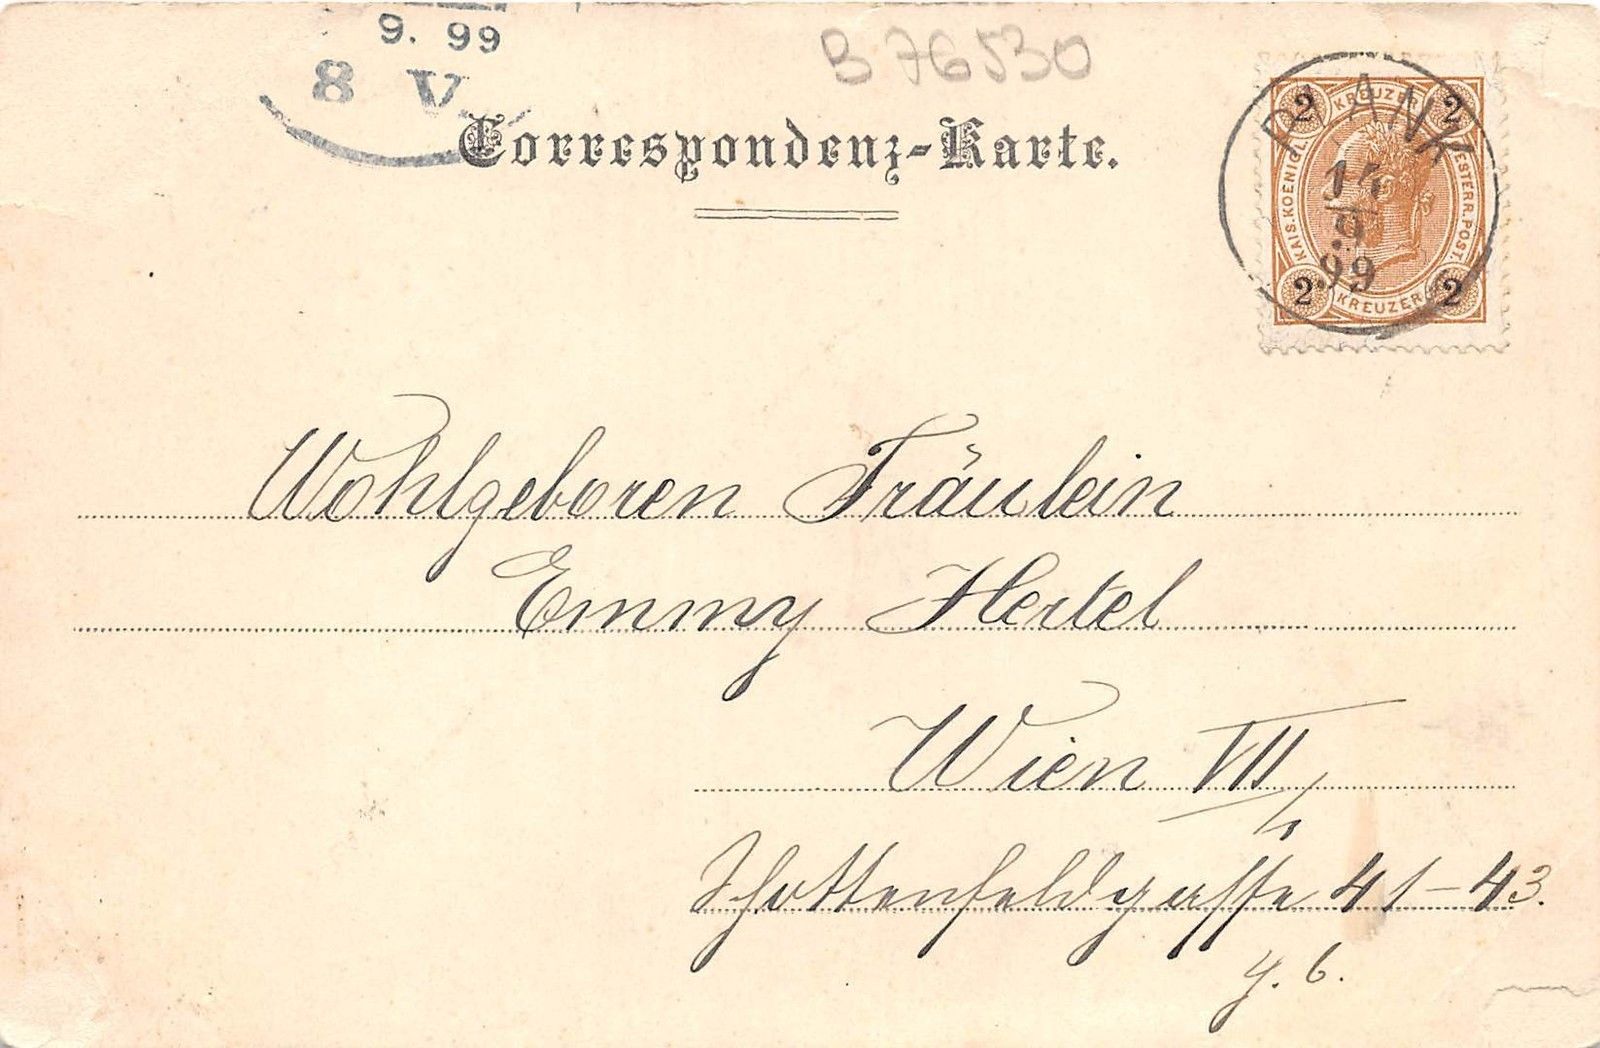 9. 99
8 V
B 76530
Correspondenz-Karte.
2 KREUZER 2
KAIS. KOENIGL. OESTERR. POST.
2 KREUZER 2
14
9
99
Wohlgeboren Fräulein
Emmy Hertel
Wien VII/1
Schottenfeldgasse 41-43.